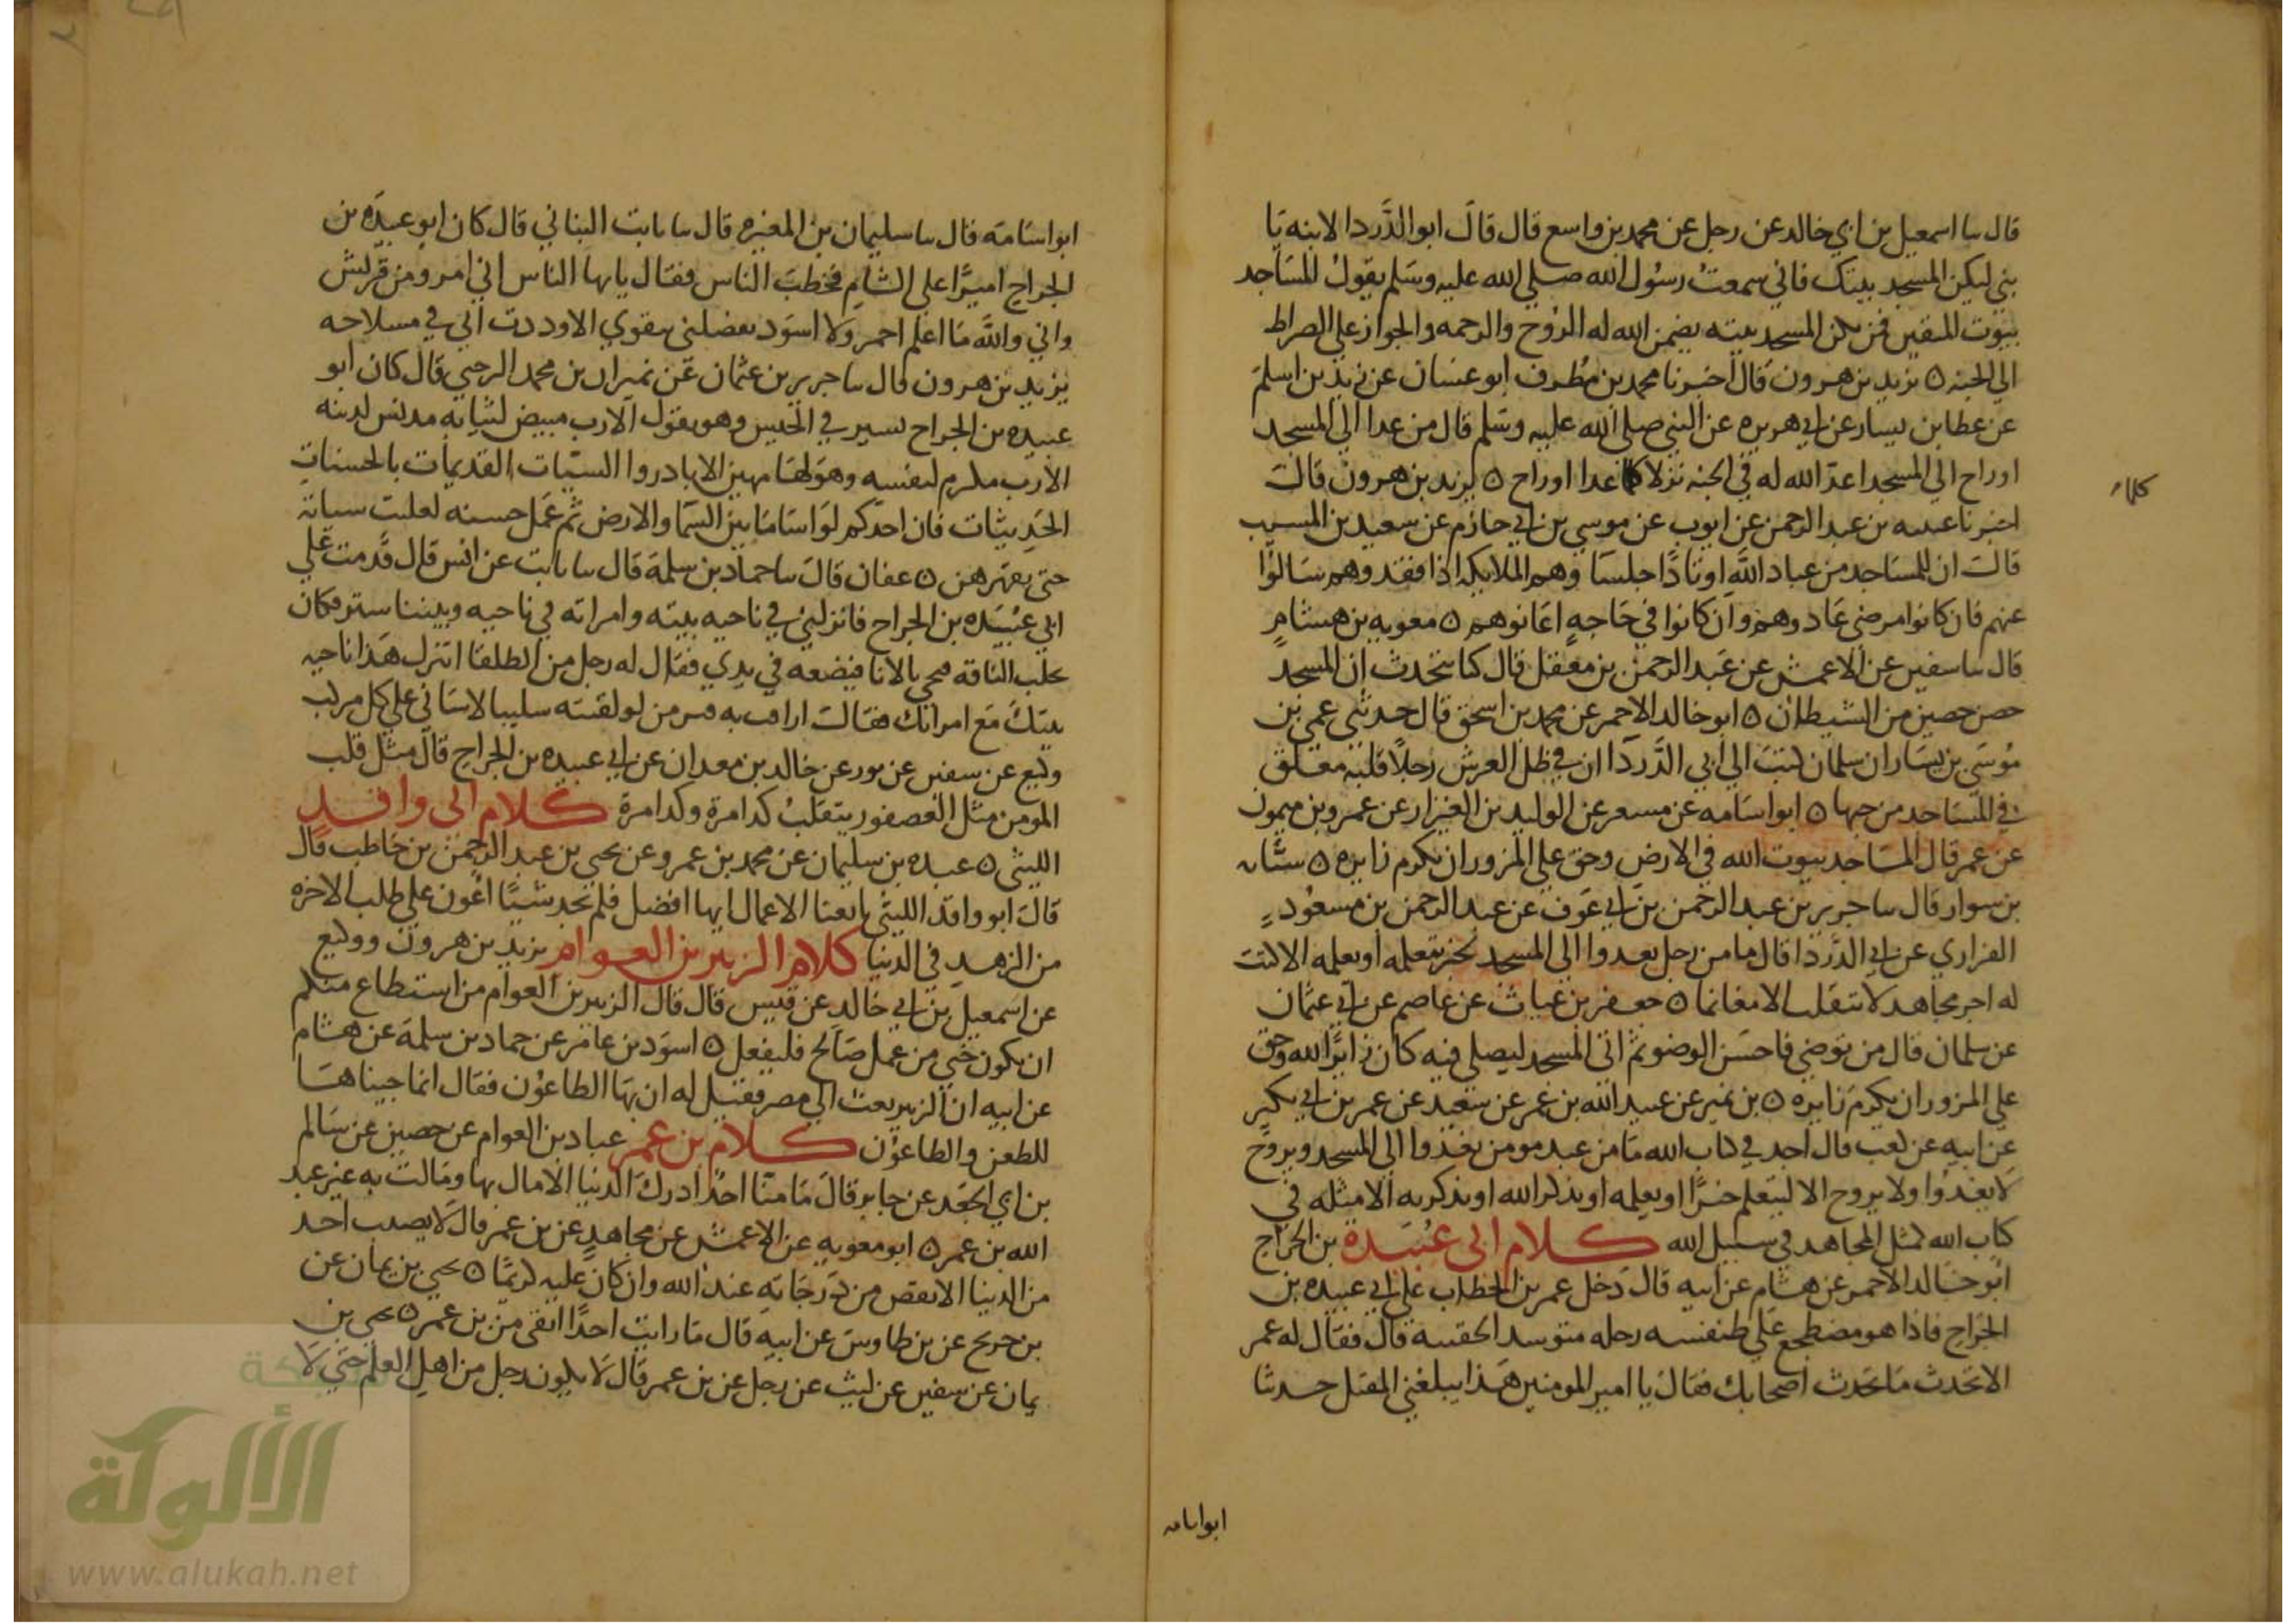 قال سا اسمعيل بن ابي خالد عن رجل عن محمد بن واسع قال قال ابو الدَّردا لابنه يَا
بني ليكن المسجد بيتك فاني سمعتُ رسُول الله صلي الله عليه وسَلم يقولُ المسَاجد
بيوت المتقين فمن يكن المسجد بيته يضمن الله له الروح والرحمه والجواز علي الصراط
الي الجنه ٥ يزيد بن هرون قال اخبرنا محمد بن مُطرف ابو غسان عن زيد بن اسلم
عن عطا بن يسار عن ابي هريره عن النبي صلي الله عليه وسَلم قال من غدا الي المسجد
اوراح الي المسجد اعدّ الله له في الجنه نزلا كلما غدا اوراح ٥ يزيد بن هرون قالَ
كلما
اخبرنا عبد الرحمن عن ايوب عن موسي بن ابي حازم عن سعيد بن المسيب
قالَ ان للمسَاجد من عباد اللَّه اوتادًا جلسَا وهم الملايكه اذا فقدوهم سَالوا
عنهم فان كانوا مرضي عَادوهم وان كانوا في حَاجهٍ اعَانوهم ٥ معويه بن هشامٍ
قال سا سفين عن الاعمش عن عَبد الرحمن بن معقل قال كنا نتحدث ان المسجد
حصن حصين من الشيطان ٥ ابو خالد الاحمر عن محمد بن اسحق قال حدثني عمي بن
مُوسَي بن يسَار ان سلمان كتبَ الي ابي الدَّردَا ان في ظل العرش رجلاً قلبه معلق
في المسَاجد من حبها ٥ ابو اسَامه عن مسعر عن الوليد بن العيزار عن عمرو بن ميمون
عن عمر قال المسَاجد بيوت الله في الارض وحق علي المزور ان يكرم زايره ٥ شبابه
بن سوار قال سا جرير بن عبد الرحمن بن ابي عَوف عن عبد الرحمن بن مسعُودٍ
الفزاري عن ابي الدَّردَا قال ما من رجل يغدوا الي المسجد لخير يتعلمه او يعلمه الا كتبَ
له اجر مجَاهد لا ينقلب الا غانما ٥ حفص بن غياث عن عاصم عن ابي عثمان
عن سلمان قال من توضي فاحسَن الوضو ثم اتي المسجد ليصلي فيه كان زايرًا لله وحق
علي المزور ان يكرم زايره ٥ بن نمير عن عبيد الله بن عمر عن سعيد عن عمر بن ابي بكير
عن ابيه عن كعب قال اجد في كتاب الله مَا من عبد مومن يغدوا الي المسجد ويروح
لا يغدُوا ولا يروح الا ليتعلم خيرًا او يعلمه او يذكر الله او يذكر به الا مثله في
كتاب الله كمثل المجاهد في سبيل الله كلام ابي عُبيدة بن الجراح
ابو خالد الاحمر عن هشام عن ابيه قال دَخل عمر بن الخطاب علي ابي عبيده بن
الجراح فاذا هو مضطجع علَي طنفسه رحله متوسد الحقيبه قال فقال له عمر
الا تخذت مَا تخذت اصحابك فقال يا امير المومنين هَذا يبلغني المقيل حدثنا
ابو اسامه
ابو اسَامَه قال سا سليمان بن المغيره قال سا ثابت البناني قال كان ابو عبيدَه بن
الجراح اميرًا علي الشام فخطبَ الناس فقال يايها الناس اني امرو من قريش
واني واللَّه مَا اعلم احمر وَلا اسوَد يفضلني بتقوي الا وددت اني في مسلاخه
يزيد بن هرون قال سا جرير بن عثمان عن نمران بن محمد الرحبي قال كان ابو
عبيده بن الجراح يسير في الجيش وهو يقول الا رب مبيض لثيابه مدنس لدينه
الا رب مكرم لنفسه وهوَ لهَا مهين الا بادروا السيّات القديمات بالحسناتِ
الحَديثات فان احدَكم لوَ اسَا مَا بين السّما والارض ثم عَمل حسنه لعلت سياته
حتي يقهرهن ٥ عفان قالَ سا حماد بن سلمة قال سا ثابت عن انس قال قدمت علي
ابي عُبيَده بن الجراح فانزلني في ناحيه بيته وامراته في ناحيه وبيننا ستر فكان
يحلب الناقه فيجي بالانا فيضعه في يدي فقال له رجل من الطلقا اتنزل هَذا ناحيه
بيتكَ مَع امراتك فقالَ اراقب به من لو لقيته سليبا لاسَاني علي كل مركب
وكيع عن سفين عن ثور عن خالد بن معدان عن ابي عبيده بن الجراح قالَ مثل قلب
المومن مثل العصفور يتقلبُ كذا مرة وكذا مرة كلام ابي واقد
الليثي ٥ عبده بن سليمان عن محمد بن عمرو عن يحيي بن عبد الرحمن بن حاطب قال
قالَ ابو واقد الليثي تابعنا الاعمال ايها افضل فلم نجد شيئًا اعون علي طلب الاخره
من الزهد في الدنيا كلام الزبير بن العوام يزيد بن هرون ووكيع
عن اسمعيل بن ابي خالد عن قيس قال قال الزبير بن العوام من استطاع منكم
ان يكون خبي من عمل صَالح فليفعل ٥ اسوَد بن عامر عن حماد بن سلمة عن هشام
عن ابيه ان الزبير بعث الي مصر فقيل له ان بهَا الطاعُون فقال انما جيناهَا
للطعن والطاعُون كلام بن عمر عباد بن العوام عن حصين عن سَالم
بن ابي الجعَد عن جابر قالَ مَا منّا احدُ ادركَ الدنيا الا مال بها ومَالت به غير عبد
الله بن عمر ٥ ابو معويه عن الاعمش عن مجاهدٍ عن بن عمر قال لا يصيب احد
من الدنيا الا نقص من دَرجَاتهِ عند الله وان كان عليه كريمًا ٥ يحيي بن يمان عن
بن جريح عن بن طاوسَ عن ابيهِ قال مَا رايت احدًا اتقي من بن عمر ٥ يحيي بن
يمان عن سفين عن ليث عن رجل عن بن عمر قال لا يكون رجل من اهل العلم حتي لا
الألوكة
www.alukah.net